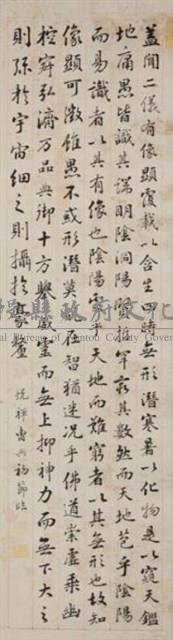 蓋聞二儀有像顯覆載以含生四時無形潛寒暑以化物是以窺天鑑
地庸愚皆識其端明陰洞陽賢哲罕窮其數然而天地苞乎陰陽
而易識者以其有像也陰陽處乎天地而難窮者以其無形也故知
像顯可徵雖愚不惑形潛莫覩在智猶迷況乎佛道崇虛乘幽
控寂弘濟万品典御十方舉威靈而無上抑神力而無下大之
則彌於宇宙細之則攝於豪釐
節臨
縣政府文化
al Bureau of Nantou County Government